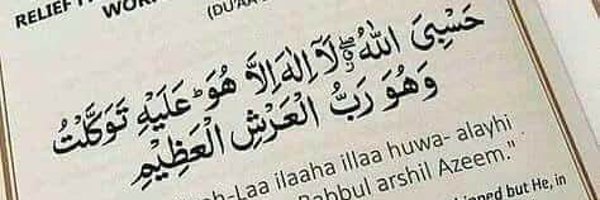 RELIEF
WOR
(DU'AA
حَسْبِيَ اللّٰهُ لَآ اِلٰهَ اِلَّا هُوَ ؕ عَلَيْهِ تَوَكَّلْتُ
وَهُوَ رَبُّ الْعَرْشِ الْعَظِيْمِ
ah-Laa ilaaha illaa huwa- alayhi
Rabbul arshil Azeem."
but He, in